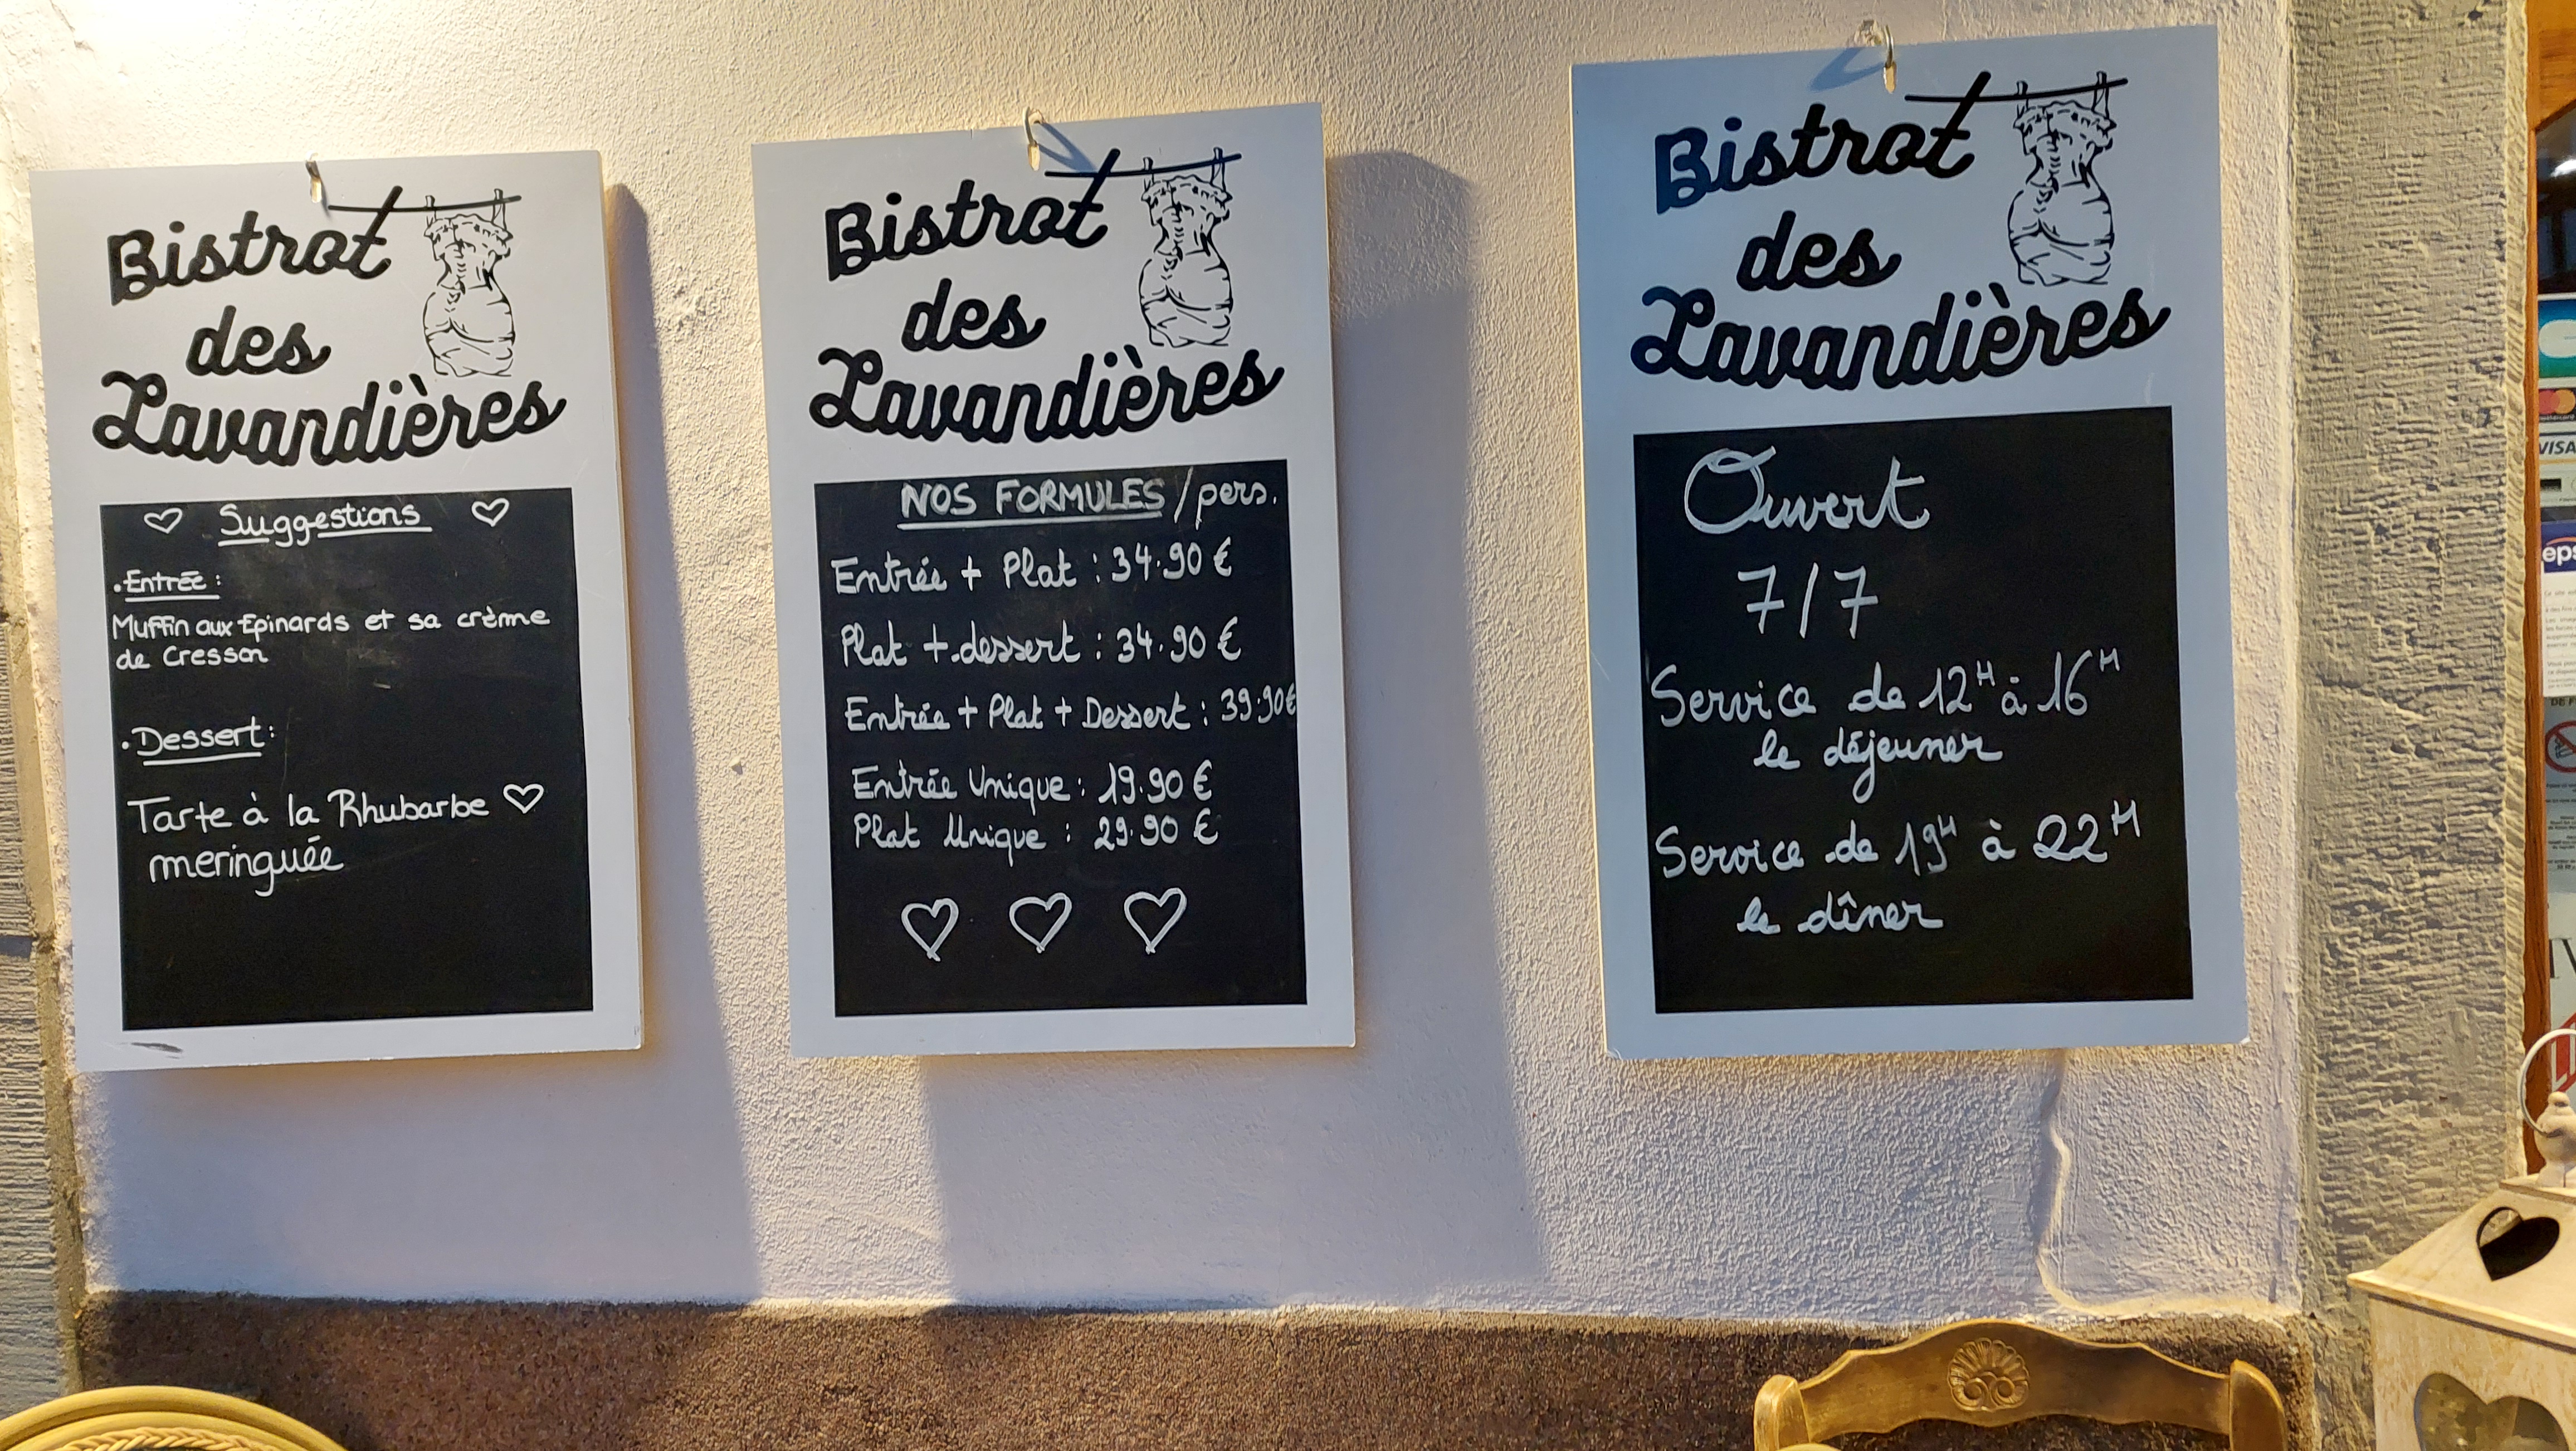 Bistrot
des
Lavandières
Suggestions
.Entrée :
Muffin aux Epinards et sa crème
de Cresson
.Dessert :
Tarte à la Rhubarbe
meringuée
Bistrot
des
Lavandières
NOS FORMULES / pers.
Entrée + Plat : 34.90 €
Plat + dessert : 34.90 €
Entrée + Plat + Dessert : 39.90€
Entrée Unique : 19.90 €
Plat Unique : 29.90 €
Bistrot
des
Lavandières
Ouvert
7/7
Service de 12H à 16H
le déjeuner
Service de 19H à 22H
le dîner
VISA